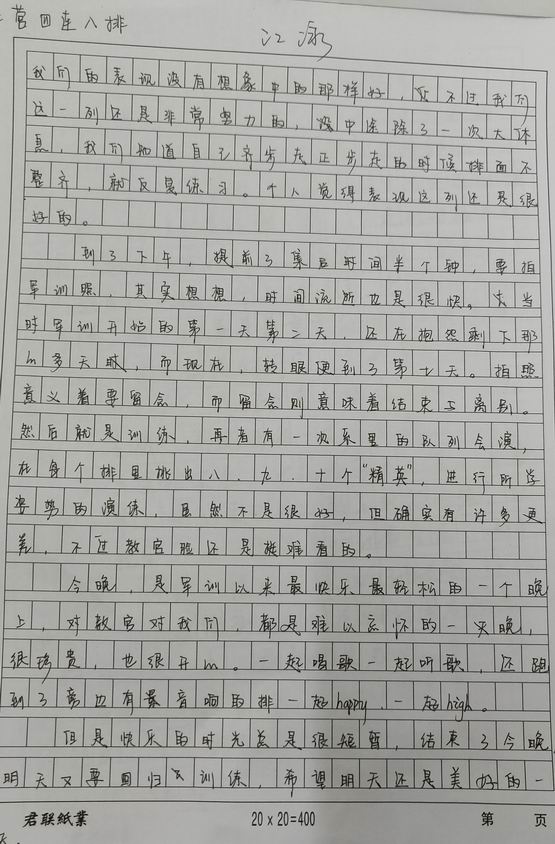 营四连八排
江泳
我们的表现没有想象中的那样好，但不过我们
这一列还是非常努力的，没中途除了一次大休
息，我们知道自己齐步走正步走的时候排面不
整齐，就反复练习。个人觉得表现这列还是很
好的。
到了下午，提前了集合时间半个钟，要拍
军训照，其实想想，时间流逝也是很快。去当
时军训开始的第一天第二天，还在抱怨剩下那
m多天时，而现在，转眼便到了第七天。拍照
意义着要留念，而留念则意味着结束与离别。
然后就是训练，再者有一次系里的队列会演，
在每个排里挑出八、九、十个“精英”，进行所学
姿势的演练，虽然不是很好，但确实有许多更
差，不过教官脸还是挺难看的。
今晚，是军训以来最快乐最轻松的一个晚
上，对教官对我们，都是难以忘怀的一夹晚，
很珍贵，也很开m。一起唱歌一起听歌，还跑
到了旁边有录音响的排一起happy、一起high。
但是快乐的时光总是很短暂，结束了今晚，
明天又要回归训练，希望明天还是美好的一
君联纸業
20×20=400
第 页